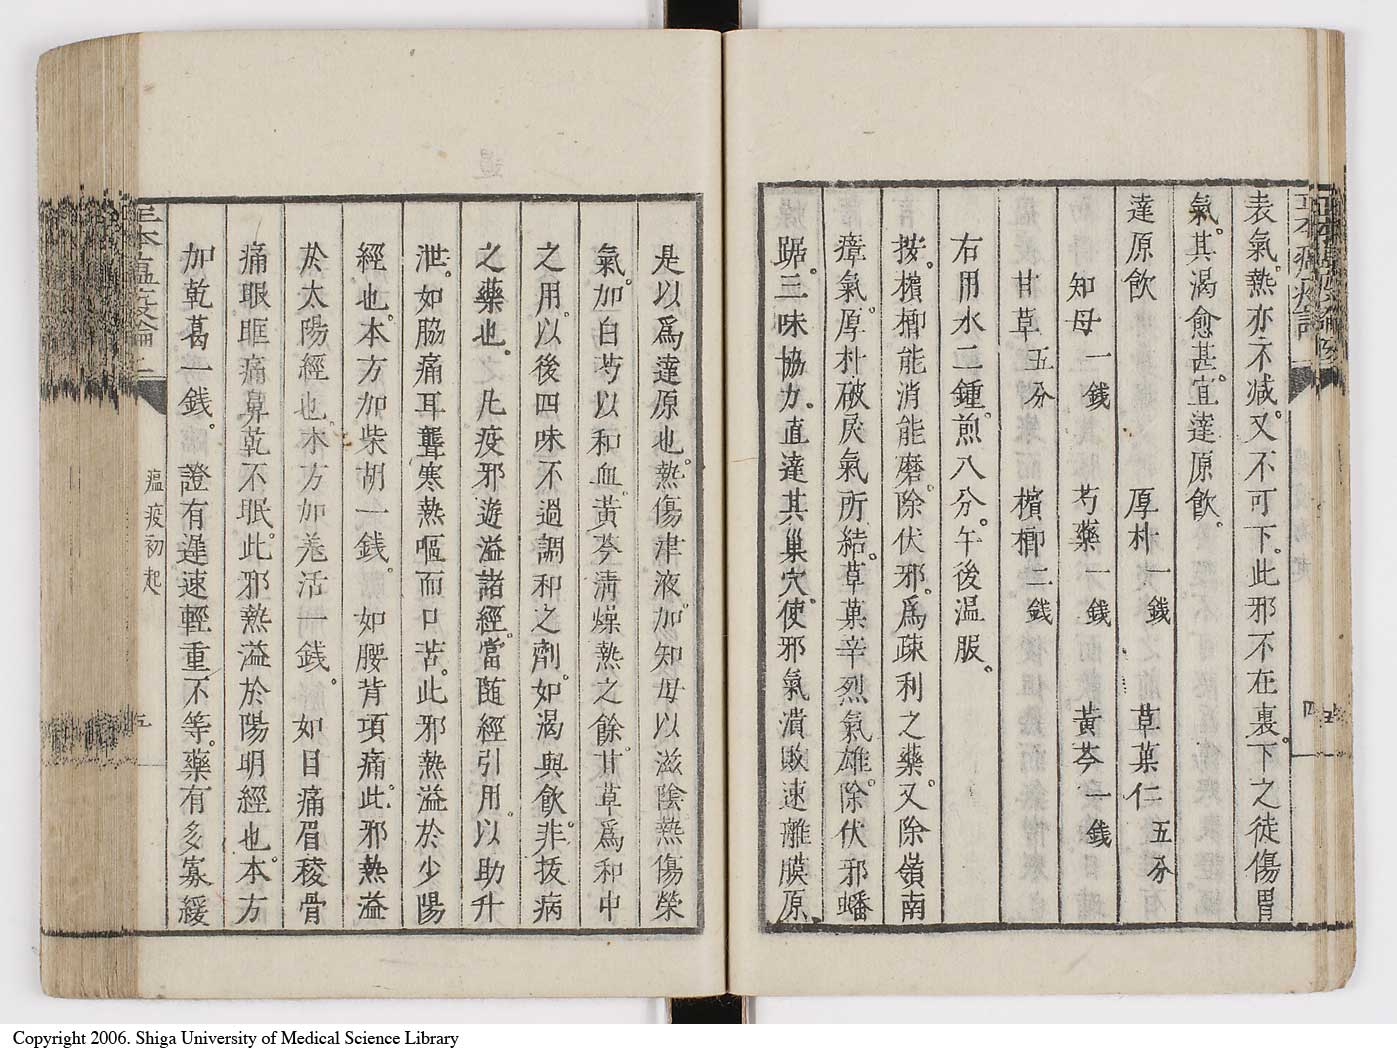 表氣。熱亦不减。又不可下。此邪不在裏。下之徒傷胃
氣。其渴愈甚。宜達原飲。
達原飲 厚朴一錢 草菓仁五分
知母一錢 芍藥一錢 黃芩一錢
甘草五分 檳榔二錢
右用水二鍾。煎八分。午後温服。
按。檳榔能消能磨。除伏邪。爲疎利之藥。又除嶺南
瘴氣。厚朴破戾氣所結。草菓辛烈氣雄。除伏邪蟠
踞。三味協力。直達其巢穴。使邪氣潰敗。速離膜原。
是以爲達原也。熱傷津液。加知母以滋陰。熱傷榮
氣。加白芍以和血。黃芩淸燥熱之餘。甘草爲和中
之用。以後四味不過調和之劑。如渴與飮。非拔病
之藥也。凡疫邪遊溢諸經。當随經引用。以助升
泄。如脇痛耳聾寒熱嘔而口苦。此邪熱溢於少陽
經也。本方加柴胡一錢。如腰背項痛。此邪熱溢
於太陽經也。本方加羗活一錢。如目痛眉稜骨
痛眼眶痛鼻乾不眠。此邪熱溢於陽明經也。本方
加乾葛一錢。證有遲速輕重不等。藥有多寡緩
瘟疫初起
五
四